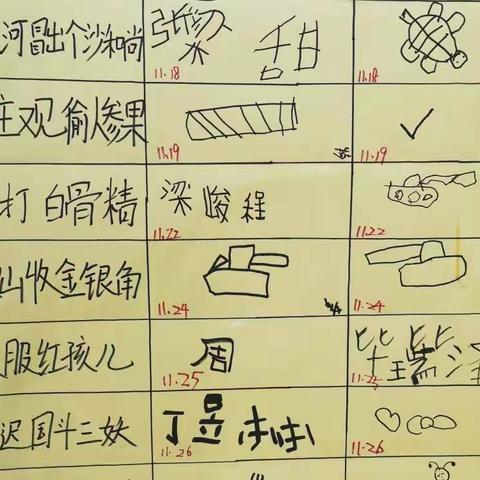 河冒出个沙和尚
张梁 甜
11.18
11.18
庄观偷人参果
11.19
11.19
打白骨精
梁峻程
11.22
11.22
山收金银角
11.24
11.24
服红孩儿
周
11.25
毕瑞泽
11.25
迟国斗三妖
丁昱
11.26
11.26